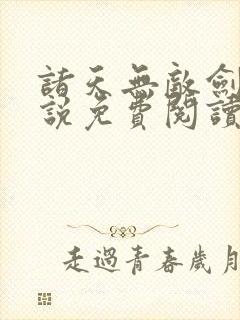 諸天無敵劍
說免費閱讀
走過青春歲月